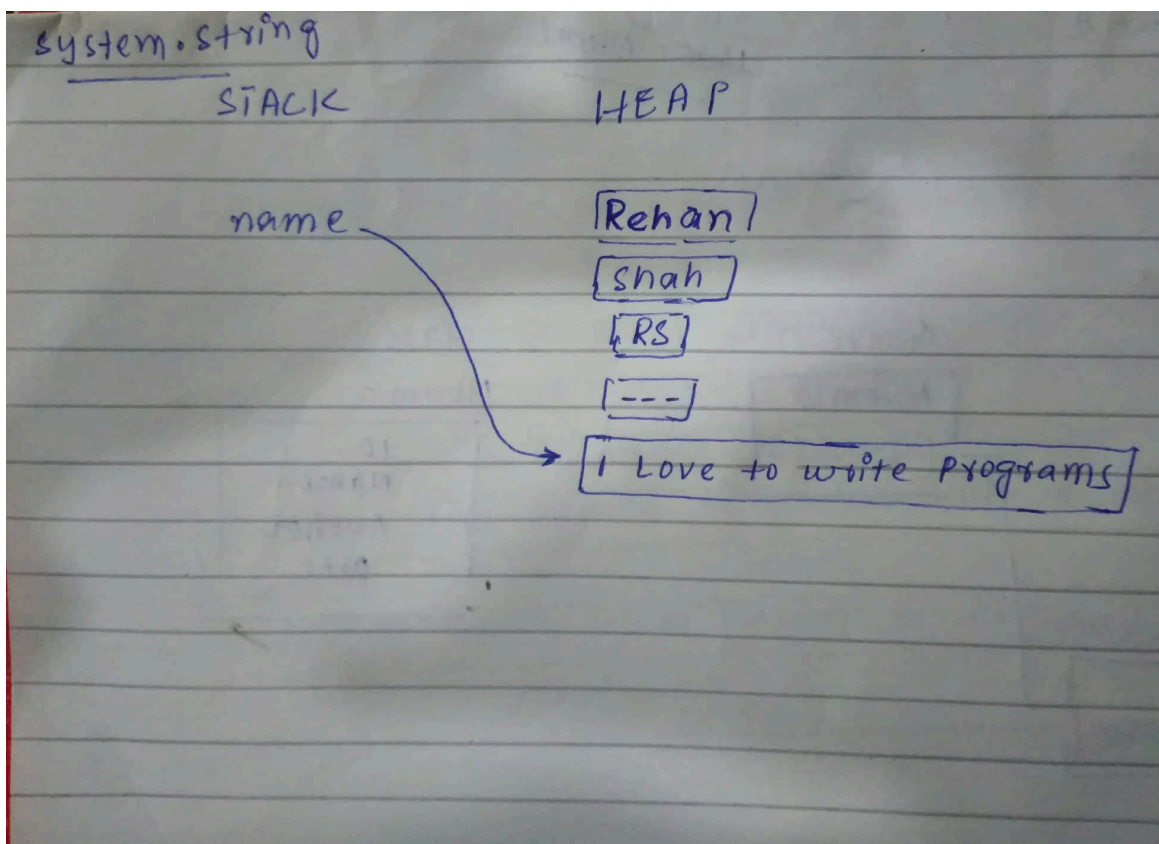 system.string
STACK HEAP
name Rehan
Shah
RS
---
I Love to write programs